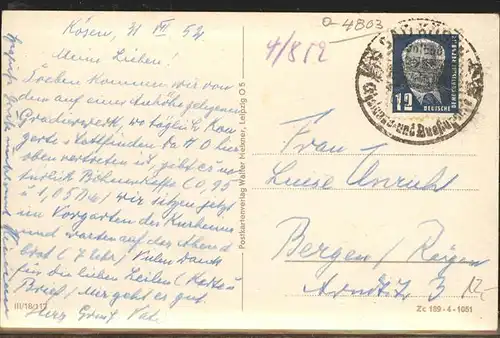 Kösen, 21 VII 52
Meine Lieben!
Soeben kommen wir von
dem auf einer Anhöhe gelegenen
Gradierwerk, wo täglich Kon
zerte stattfinden da HO hier
oben vertreten ist, gibt es na
türlich Bohnenkaffe (0,95
u 1,05 DM) wir sitzen jetzt
im Vorgarten des Kurheims
und warten auf das Abend
brot (7 Uhr) Vielen Dank
für die lieben Zeilen (Karte u
Brief) Mir geht es gut.
Herz Gruß Vati
III/18/112
Postkartenverlag Walter Meßner, Leipzig O 5
a-4803
4/852
BAD KÖSEN
12
DEUTSCHE
DEMOKRATISCHE REPUBLIK
Frau
Luise Unruht
Bergen / Rügen
Arndtstr 3
12,-
Zc 189-4-1051